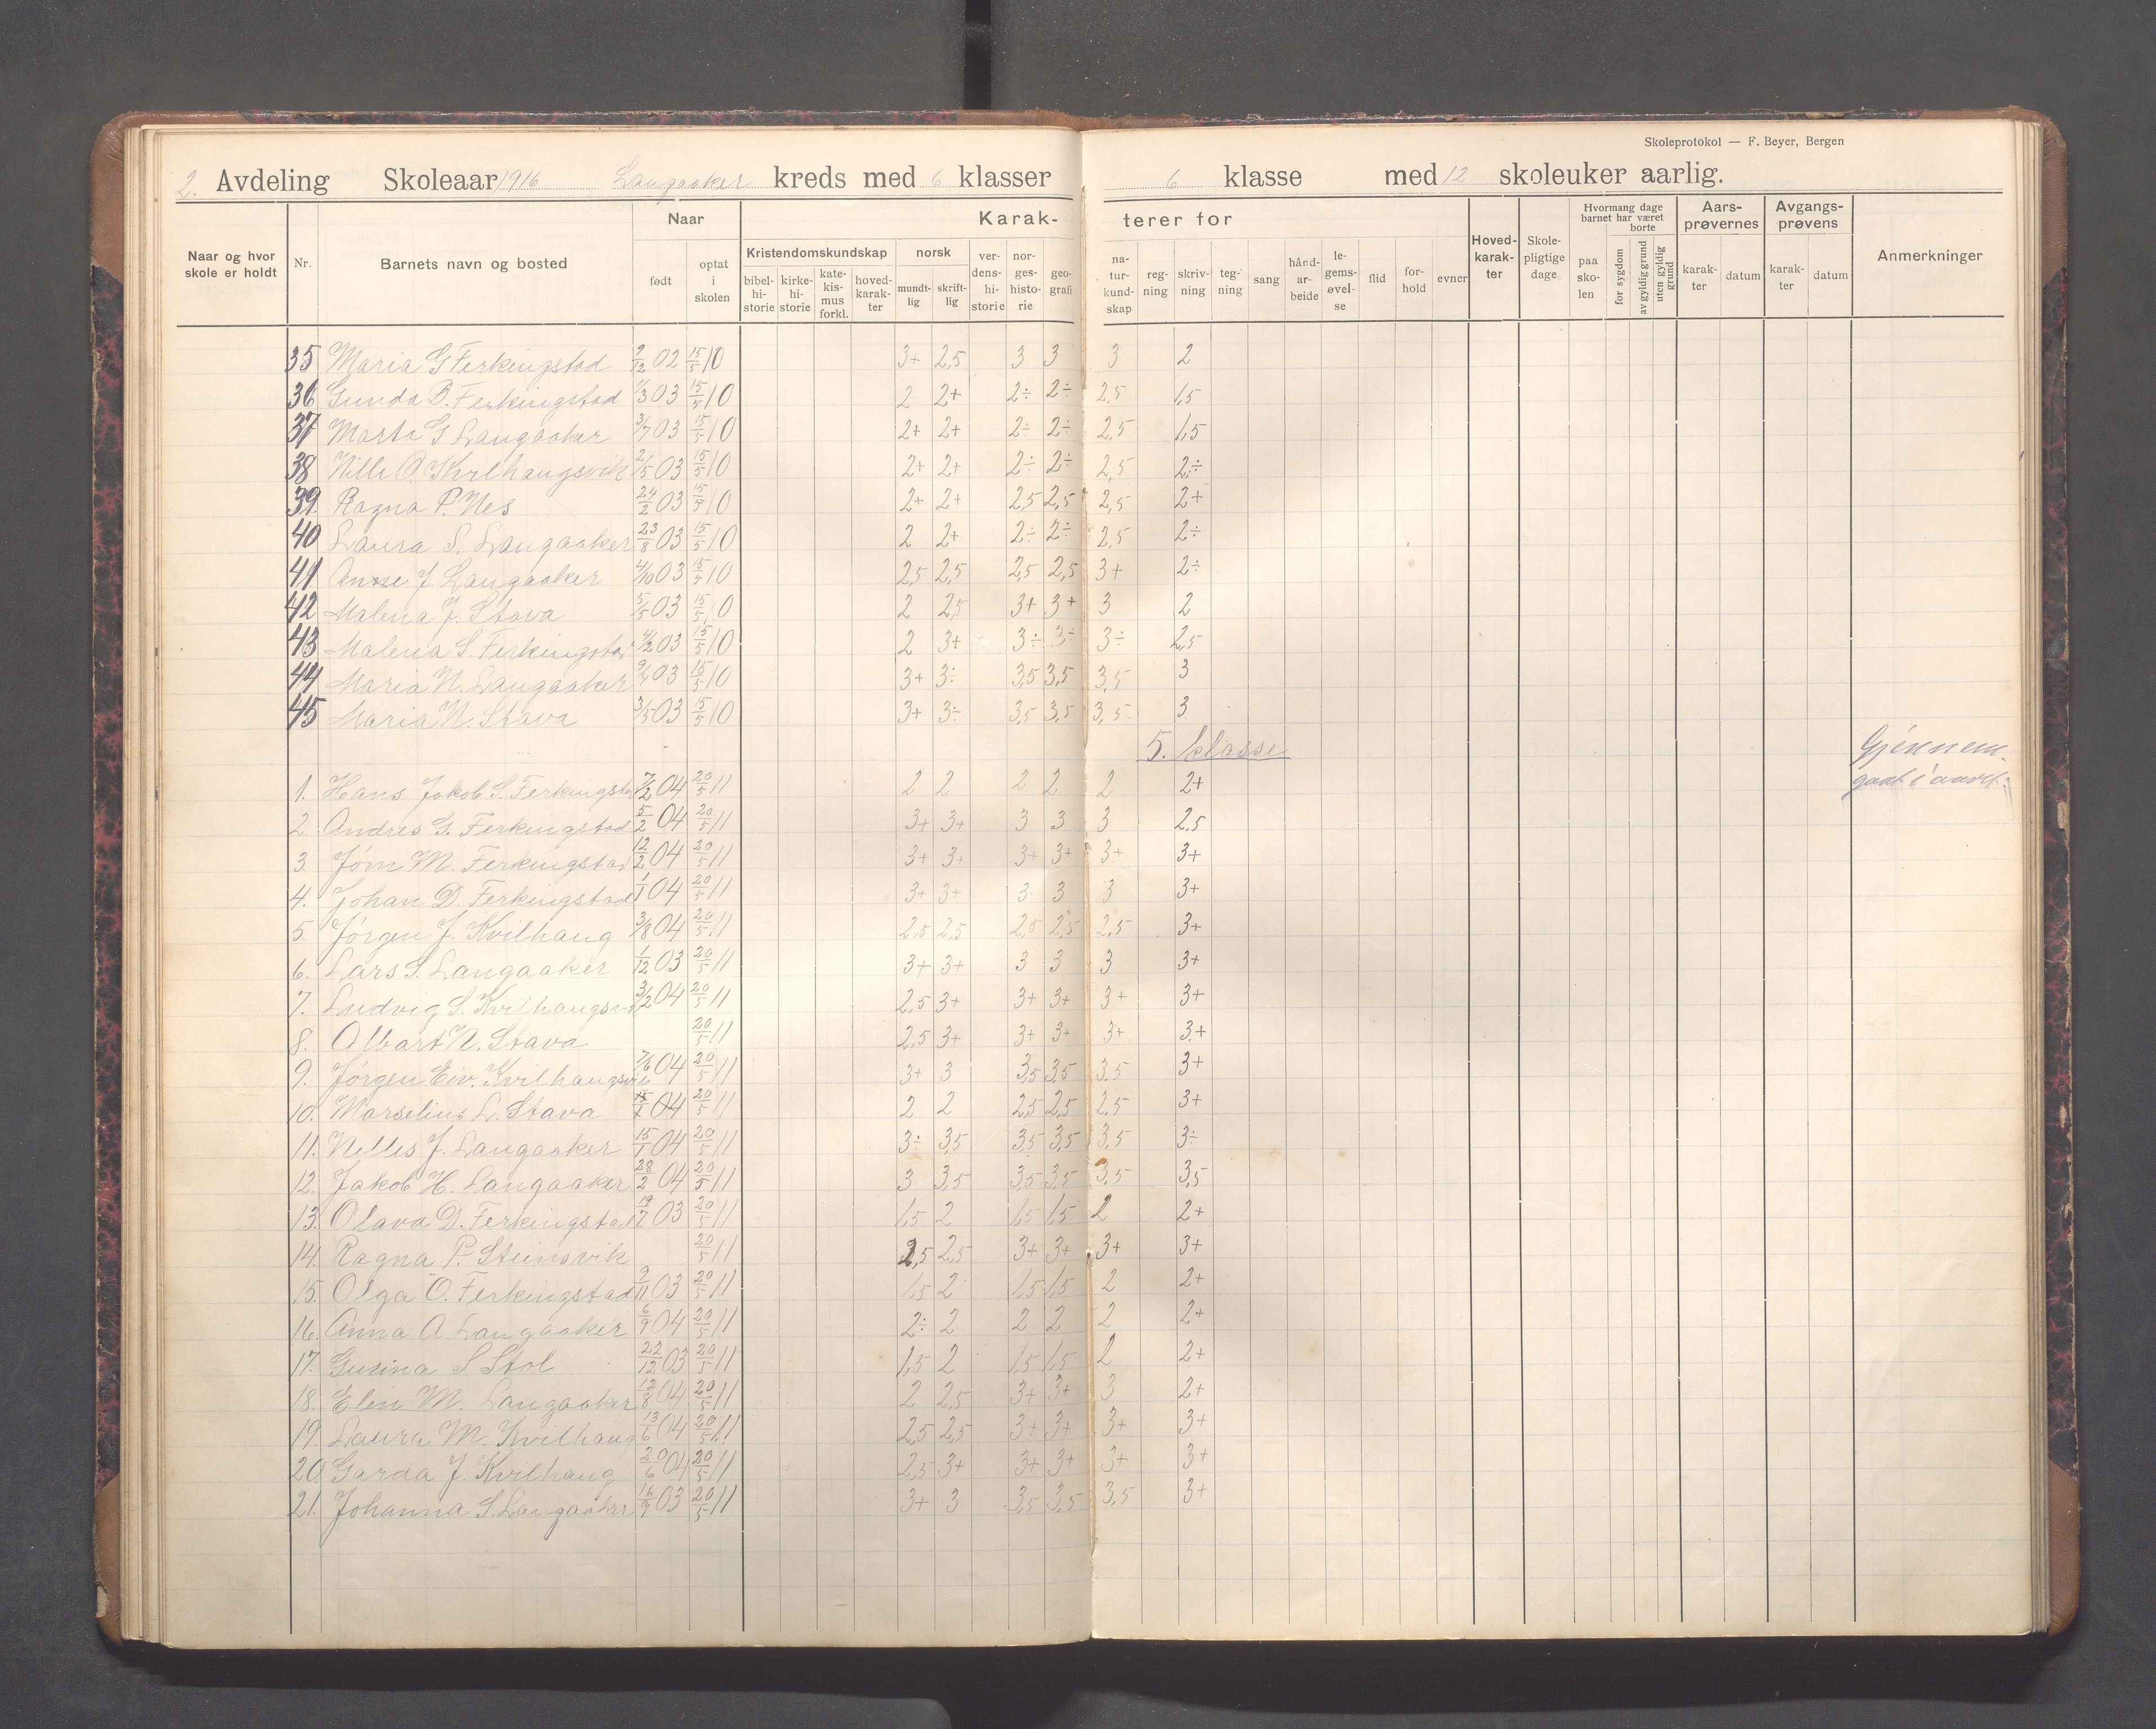 Skoleprotokol — F. Beyer, Bergen
2. Avdeling Skoleaar 1916 Langaaker kreds med 6 klasser 6 klasse med 12 skoleuker aarlig.
Naar og hvor skole er holdt Nr. Barnets navn og bosted Naar født optat i skolen Karakterer for Kristendomskundskap bibelhistorie kirkehistorie katekismus forkl. hovedkarakter norsk mundtlig skriftlig verdenshistorie norgeshistorie geografi naturkundskap regning skrivning tegning sang håndarbeide legemsøvelse flid forhold evner Hovedkarakter Skolepligtige dage Hvormang dage barnet har været paa skolen borte for sygdom av gyldig grund uten gyldig grund Aarsprøvernes karakter datum Avgangsprøvens karakter datum Anmerkninger
35 Maria G Ferkingstad 9/12 02 15/5 10 3+ 2,5 3 3 3 2
36 Gunda B. Ferkingstad 1/3 03 15/5 10 2 2+ 2÷ 2÷ 2,5 1,5
37 Marta G Langaaker 3/7 03 15/5 10 2+ 2+ 2÷ 2÷ 2,5 1,5
38 Nille O. Kvilhaugsvik 2/5 03 15/5 10 2+ 2+ 2÷ 2÷ 2,5 2÷
39 Ragna P. Nes 24/2 03 15/5 10 2+ 2+ 2,5 2,5 2,5 2+
40 Laura S. Langaaker 23/8 03 15/5 10 2 2+ 2÷ 2÷ 2,5 2÷
41 Anne J. Langaaker 4/10 03 15/5 10 2,5 2,5 2,5 2,5 3+ 2÷
42 Malena J. Stava 5/5 03 15/5 10 2 2,5 3+ 3+ 3 2
43 Malena S. Ferkingstad 03 15/5 10 2 3+ 3÷ 3÷ 3÷ 2,5
44 Maria N. Langaaker 03 15/5 10 3+ 3÷ 3,5 3,5 3,5 3
45 Maria N. Stava 3/5 03 15/5 10 3+ 3÷ 3,5 3,5 3,5 3
5. klasse Gjennem-
gaat i aaret:
1. Hans Jakob S. Ferkingstad 7/2 04 20/5 11 2 2 2 2 2 2+
2. Andres G. Ferkingstad 5/2 04 20/5 11 3+ 3+ 3 3 3 2,5
3. Jørn M. Ferkingstad 12/2 04 20/5 11 3+ 3+ 3+ 3+ 3+ 3+
4. Johan D. Ferkingstad 1/1 04 20/5 11 3+ 3+ 3 3 3 3+
5. Jørgen J. Kvilhaug 3/8 04 20/5 11 2,5 2,5 2,5 2,5 2,5 3+
6. Lars S. Langaaker 1/12 03 20/5 11 3+ 3+ 3 3 3 3+
7. Ludvig S. Kvilhaugsvik 3/2 04 20/5 11 2,5 3+ 3+ 3+ 3+ 3+
8. Albart N. Stava 20/5 11 2,5 3+ 3+ 3+ 3+ 3+
9. Jørgen Eiv. Kvilhaugsvik 7/6 04 20/5 11 3+ 3 3,5 3,5 3,5 3+
10. Marselius L. Stava 04 20/5 11 2 2 2,5 2,5 2,5 3+
11. Nilles J. Langaaker 15/1 04 20/5 11 3÷ 3,5 3,5 3,5 3,5 3÷
12. Jakob H. Langaaker 28/2 04 20/5 11 3 3,5 3,5 3,5 3,5 3,5
13. Olava D. Ferkingstad 19/7 03 20/5 11 1,5 2 1,5 1,5 2 2+
14. Ragna P. Steinsvik 20/5 11 2,5 2,5 3+ 3+ 3+ 3+
15. Olga O. Ferkingstad 9/11 03 20/5 11 1,5 2 1,5 1,5 2 2+
16. Anna A. Langaaker 6/9 04 20/5 11 2÷ 2 2 2 2 2+
17. Gurina S Stol 22/12 03 20/5 11 1,5 2 1,5 1,5 2 2+
18. Elen M. Langaaker 12/8 04 20/5 11 2 2,5 3+ 3+ 3 2+
19. Laura M. Kvilhaug 13/6 04 20/5 11 2,5 2,5 3+ 3+ 3+ 3+
20. Garda J. Kvilhaug 20/6 04 20/5 11 2,5 3+ 3+ 3+ 3+ 3+
21. Johanna S. Langaaker 16/9 03 20/5 11 3+ 3 3,5 3,5 3,5 3+